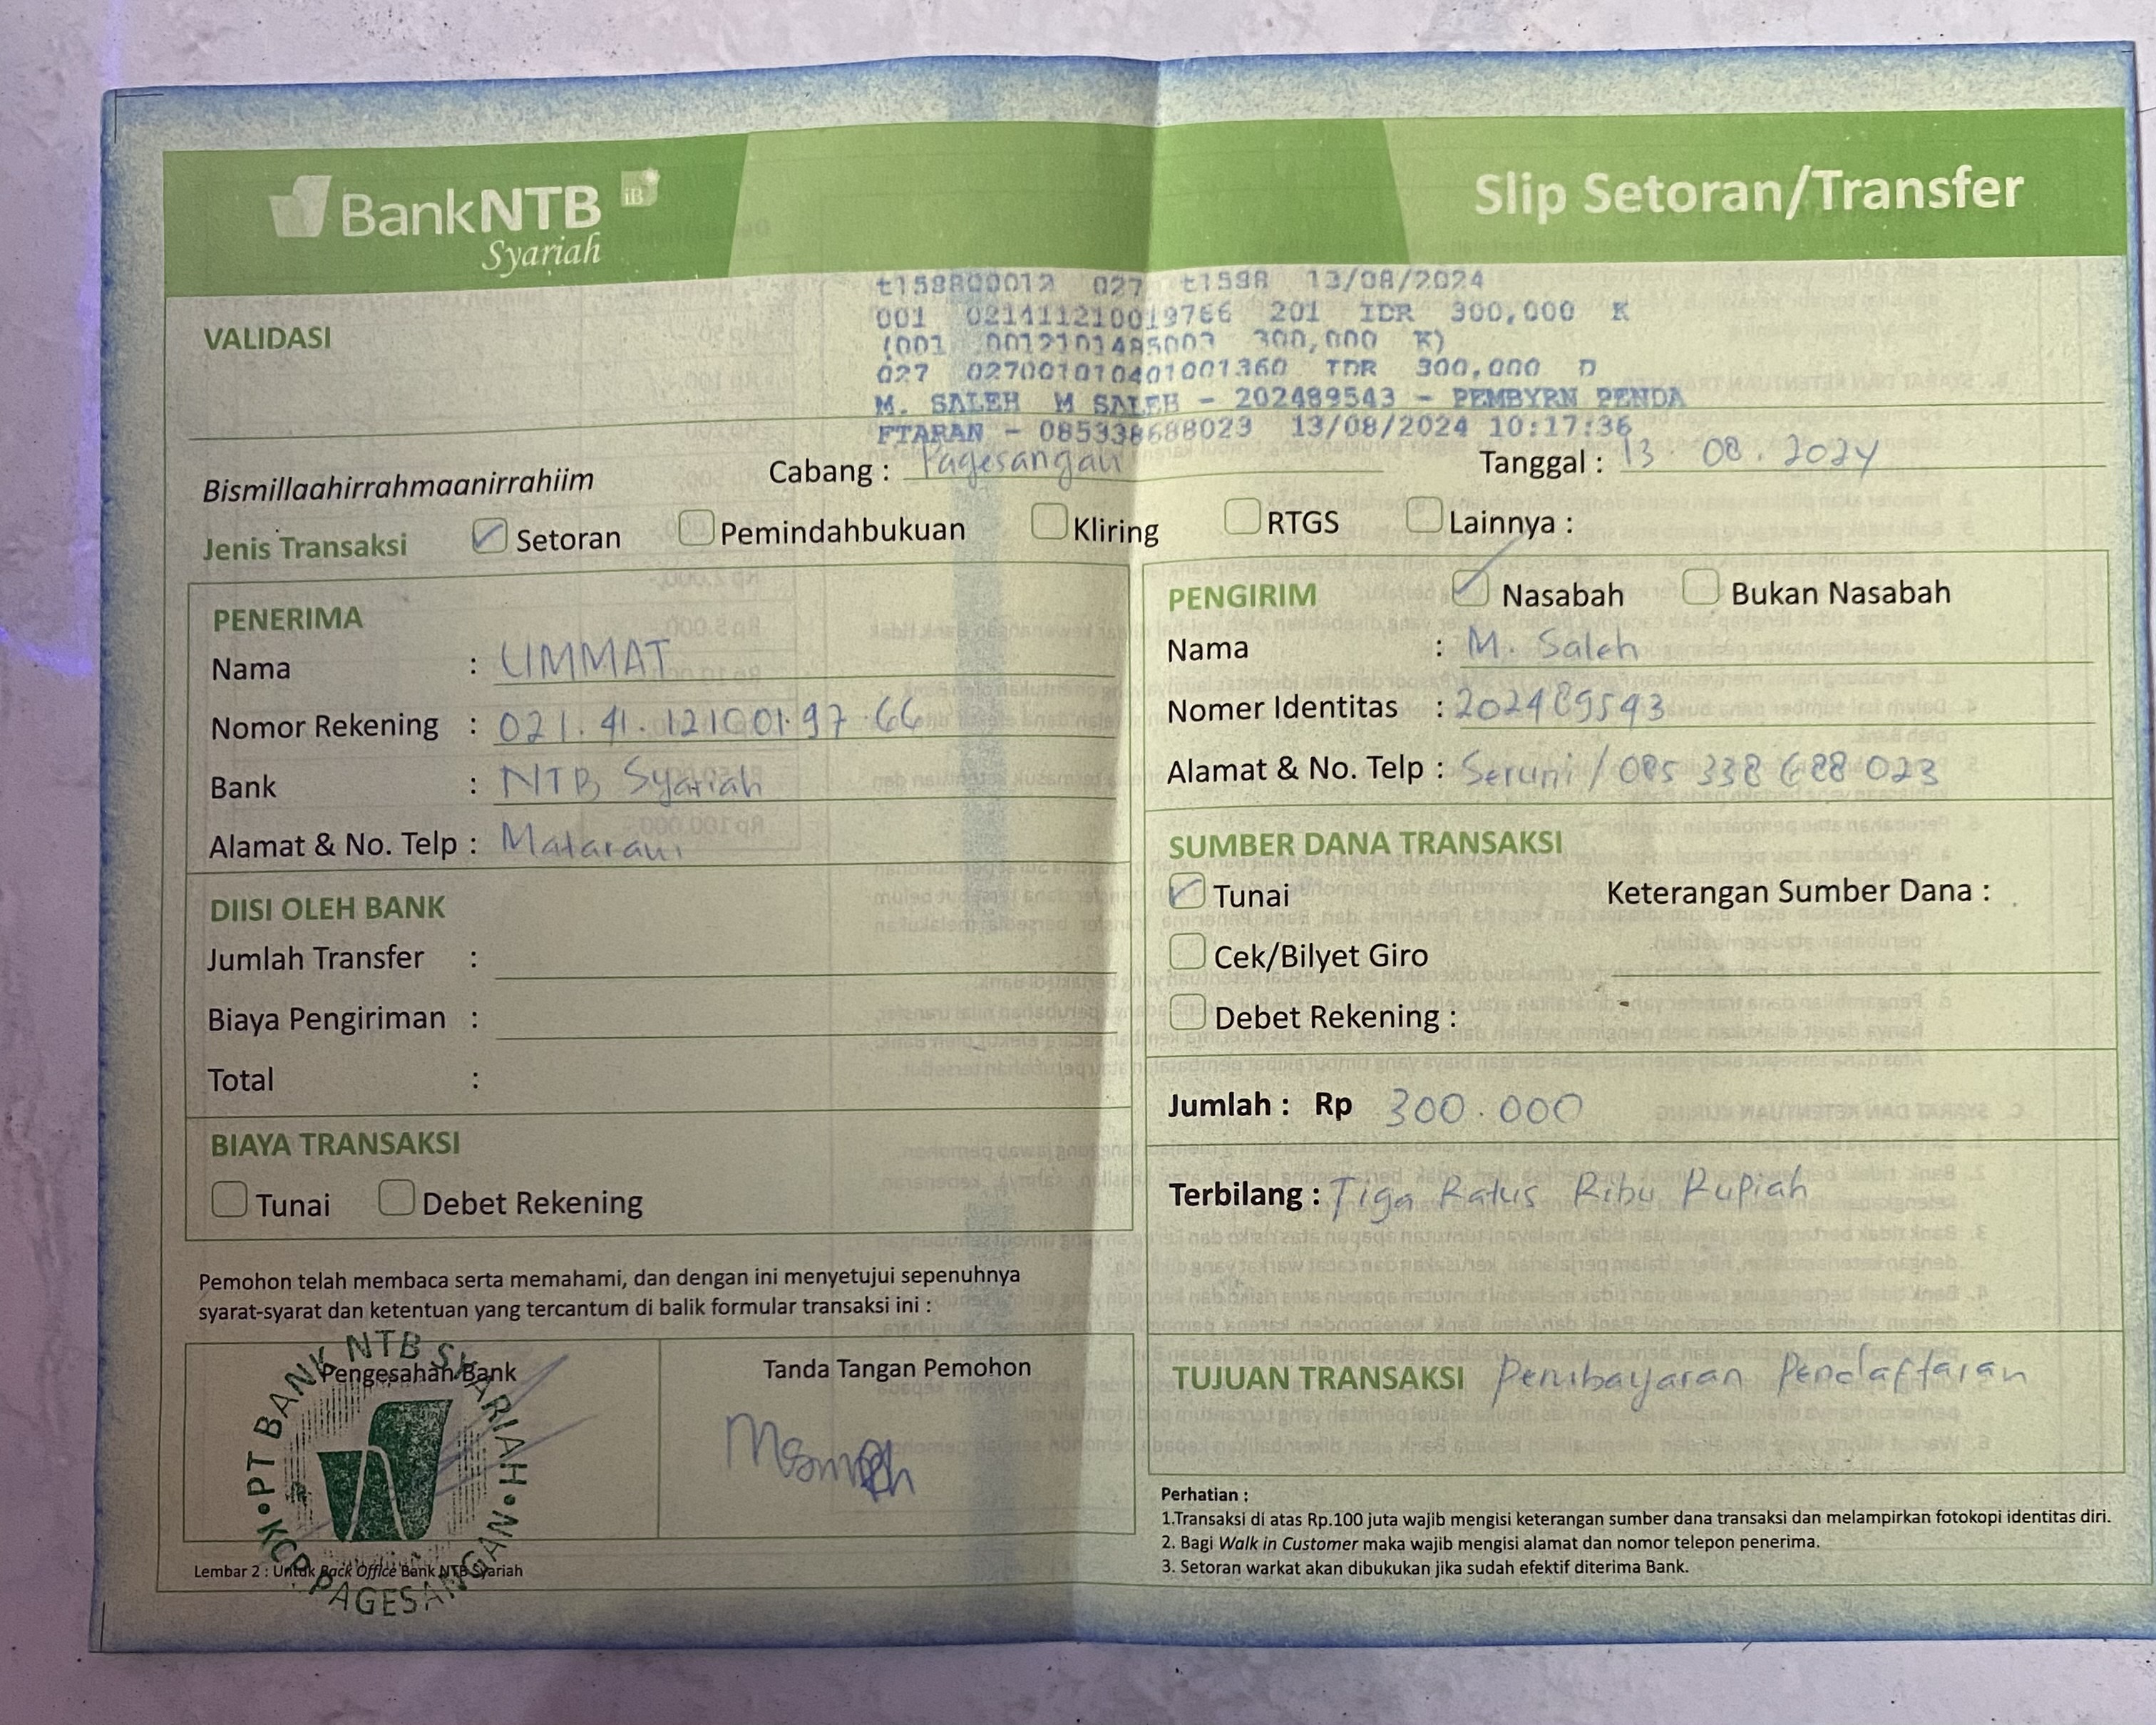 BankNTB iB
Syariah
Slip Setoran/Transfer
VALIDASI
t159800012 027 t1598 13/08/2024
001 021411210019766 201 IDR 300,000 K
(001 0012101485003 300,000 K)
027 027001010401001360 IDR 300,000 D
M. SALEH M SALEH - 202489543 - PEMBYRN PENDA
FTARAN - 085338688023 13/08/2024 10:17:36
Bismillaahirrahmaanirrahiim
Cabang : Pagesangan
Tanggal : 13 . 08 . 2024
Jenis Transaksi Setoran Pemindahbukuan Kliring RTGS Lainnya :
PENERIMA
Nama : UMMAT
Nomor Rekening : 021.41.12100197.66
Bank : NTB Syariah
Alamat & No. Telp : Mataram
DIISI OLEH BANK
Jumlah Transfer :
Biaya Pengiriman :
Total :
BIAYA TRANSAKSI
Tunai Debet Rekening
PENGIRIM Nasabah Bukan Nasabah
Nama : M. Saleh
Nomer Identitas : 202489543
Alamat & No. Telp : Seruni / 085 338 688 023
SUMBER DANA TRANSAKSI
Tunai Keterangan Sumber Dana :
Cek/Bilyet Giro
Debet Rekening :
Jumlah : Rp 300.000
Terbilang : Tiga Ratus Ribu Rupiah
TUJUAN TRANSAKSI Pembayaran Pendaftaran
Pemohon telah membaca serta memahami, dan dengan ini menyetujui sepenuhnya
syarat-syarat dan ketentuan yang tercantum di balik formular transaksi ini :
Pengesahan Bank
Tanda Tangan Pemohon
PT BANK NTB SYARIAH
KCP PAGESANGAN
Lembar 2 : Untuk Back Office Bank NTB Syariah
Perhatian :
1.Transaksi di atas Rp.100 juta wajib mengisi keterangan sumber dana transaksi dan melampirkan fotokopi identitas diri.
2. Bagi Walk in Customer maka wajib mengisi alamat dan nomor telepon penerima.
3. Setoran warkat akan dibukukan jika sudah efektif diterima Bank.